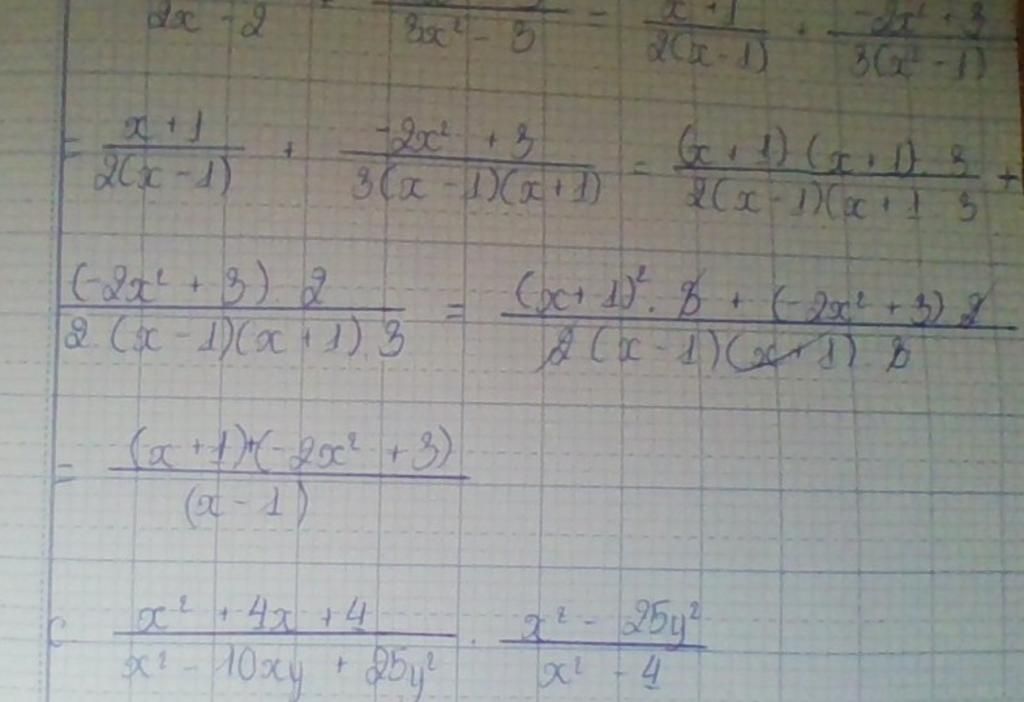 2x - 2 3x² - 3 = x + 1 / 2(x - 1) · -2x² + 3 / 3(x² - 1)
= x + 1 / 2(x - 1) + -2x² + 3 / 3(x - 1)(x + 1) = (x + 1)(x + 1) 3 / 2(x - 1)(x + 1 3 +
(-2x² + 3) 2 / 2 (x - 1)(x + 1) 3 = (x + 1)² · 3 + (-2x² + 3) 2 / 2 (x - 1)(x + 1) 3
= (x + 1)+(-2x² + 3) / (x - 1)
c x² + 4x + 4 / x² - 10xy + 25y² · x² - 25y² / x² - 4